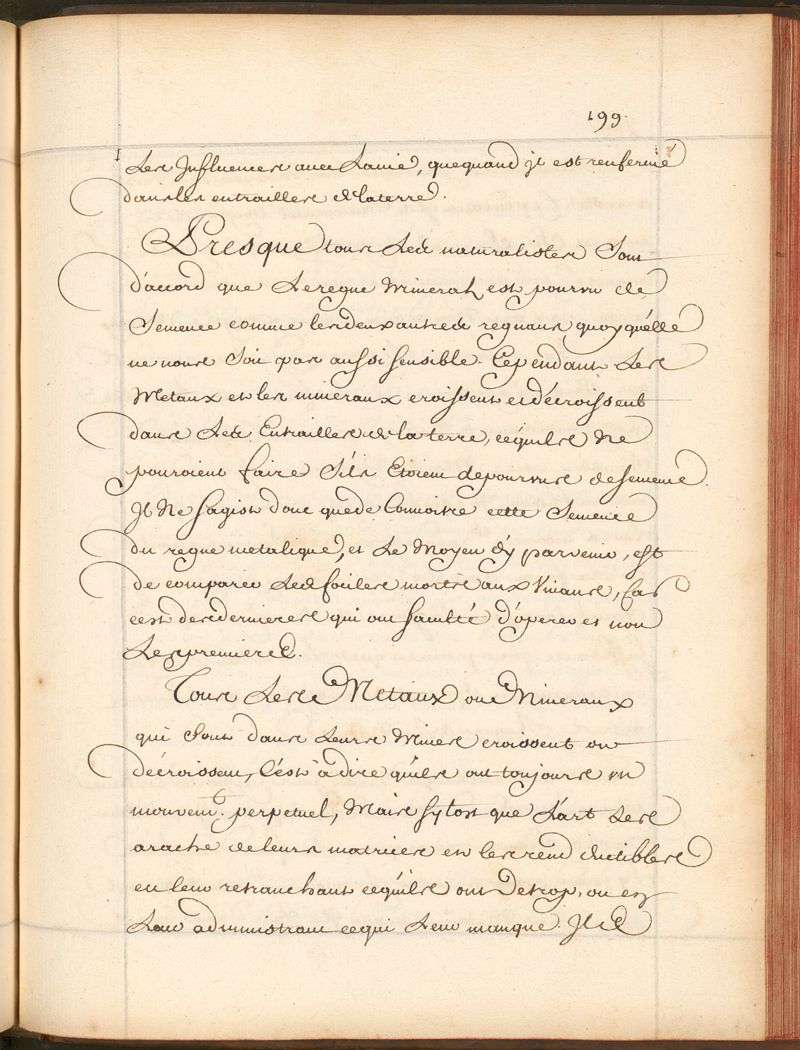 199.
Les Influences avec Lamié, quequand jl est renfermé
dans les entrailles de laterre.
Presque tous Les naturalistes Sont
d'accord que Leregne Mineral est pourvu de
Semence comme lesdeux autres regnans quoyqu'elle
ne nous Soit pas aussi sensible. Cependant Les
Metaux et les mineraux croissent et décroissent
dans Les Entrailles de la terre, cequ'ils Ne
pouroient faire S'ils Etoient depourvus desemence.
Jl Ne sagist donc quede Connoitre cette Semence
du regne metalique, et Le Moyen d'y parvenir, est
de comparer Les fociles morts aux Vivans, Car
cest desdernieres qui ont faculté d'operer et non
Lespremieres.
Tous Les Metaux ou Mineraux
qui Sont dans Leurs Mines croissent ou
décroissent, C'est a dire qu'ils ont toujours un
mouvemt. perpetuel, Mais sytost que L'art Les
arache de leurs matrices et les rend ductibles
en leur retranchant cequ'ils ont Detrop, ou en
Leur administrant cequi Leur manque. Jls